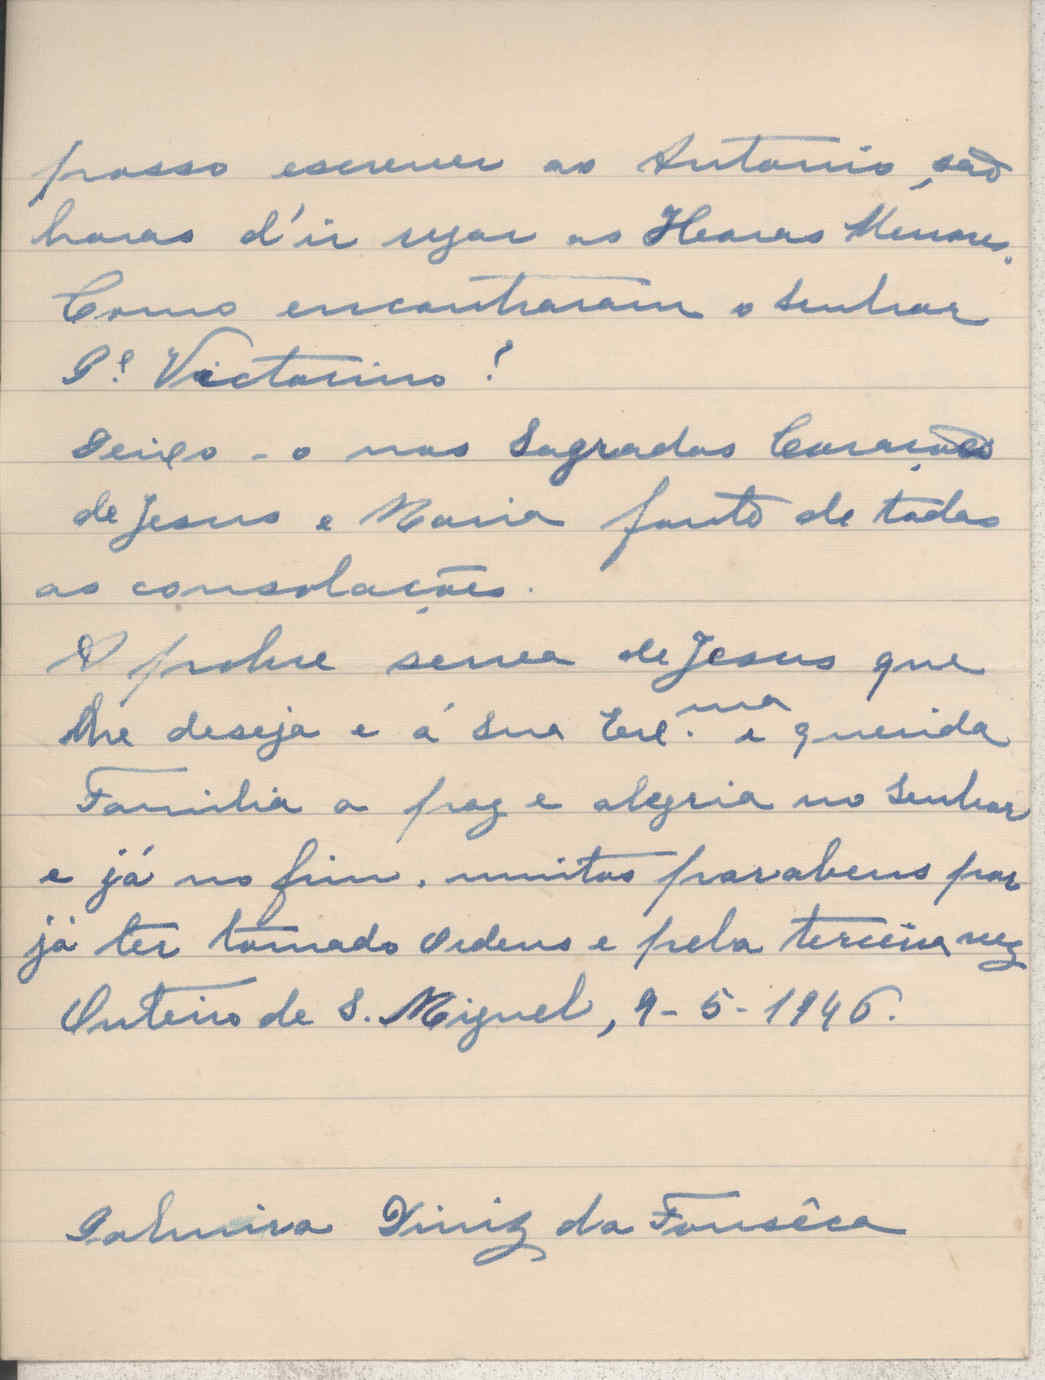 posso escrever ao Antonio, são
horas d'ir rezar as Horas Menores.
Como encontraram o Senhor
P.e Victorino?
Deixo-o nos Sagrados Corações
de Jesus e Maria fonte de todas
as consolações.
A pobre serva de Jesus que
lhe deseja e á sua Exc.ma e querida
Familia a paz e alegria no Senhor
e já no fim. muitos parabens por
já ter tomado Ordens e pela terceira vez
Outeiro de S. Miguel, 9-5-1946.
Palmira Diniz da Fonsêca